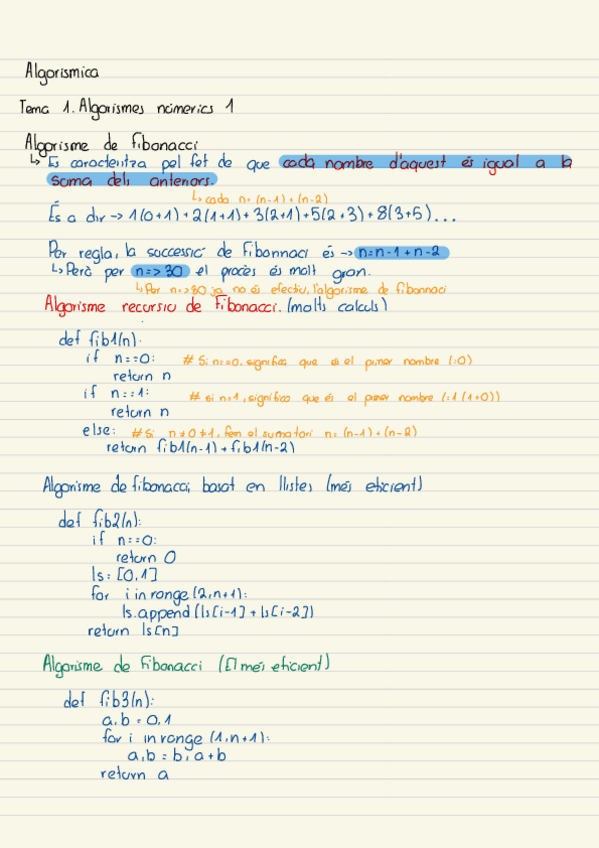 Algorísmica
Tema 1. Algorismes númerics 1
Algorisme de Fibonacci
↳ Es caracteritza pel fet de que cada nombre d'aquest és igual a la
suma dels anteriors.
↳ cada n = (n-1) + (n-2)
És a dir → 1(0+1) + 2(1+1) + 3(2+1) + 5(2+3) + 8(3+5)...
Per regla, la successió de Fibonnaci és → n=n-1+n-2
↳ Però per n=>30 el procés és molt gran.
↳ Per n=>80 ja no és efectiu, l'algorisme de fibonnaci
Algorisme recursiu de Fibonacci. (molts calculs)
def fib1(n):
if n==0: # Si n==0, significa que és el primer nombre (:0)
return n
if n==1: # si n=1, significa que és el primer nombre (:1(1+0))
return n
else: # Si n≠0≠1, fem el sumatori n=(n-1)+(n-2)
return fib1(n-1)+fib1(n-2)
Algorisme de fibonacci, basat en llistes (més eficient)
def fib2(n):
if n==0:
return 0
ls=[0,1]
for i in range(2,n+1):
ls.append(ls[i-1]+ls[i-2])
return ls[n]
Algorisme de Fibonacci (El més eficient)
def fib3(n):
a,b=0,1
for i in range (1,n+1):
a,b=b,a+b
return a